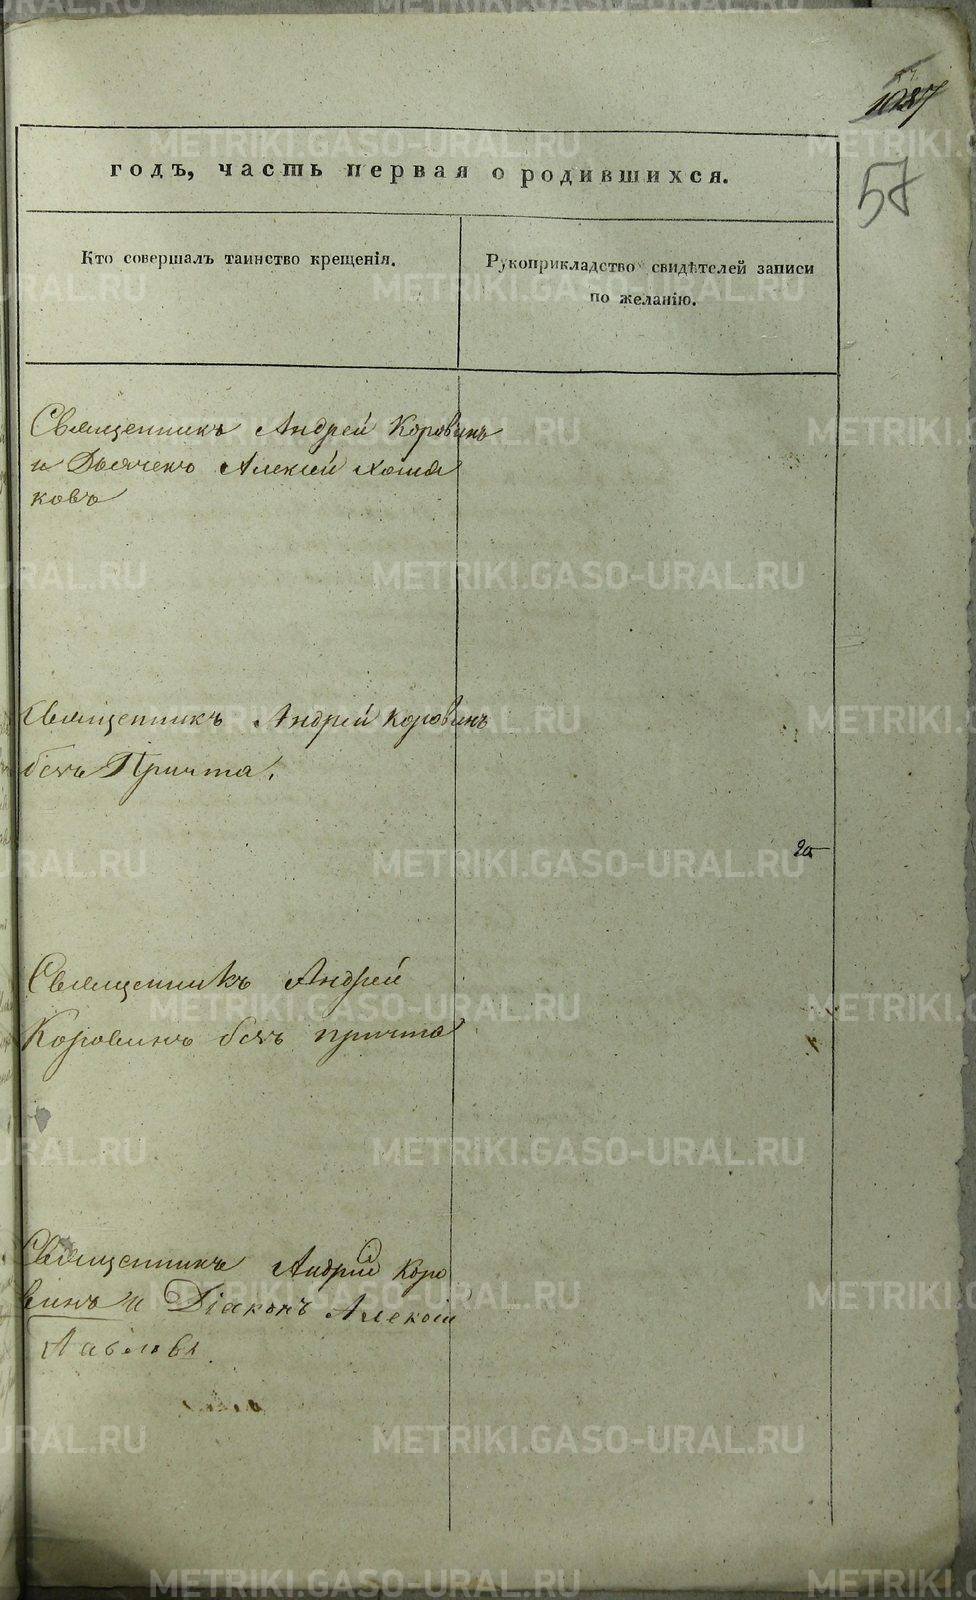 1087
57
годъ, часть первая о родившихся.
Кто совершалъ таинство крещенія.
Рукоприкладство свидѣтелей записи
по желанію.
Священникъ Андрей Коровинъ
и Дьячекъ Алексѣй Хома
ковъ
Священникъ Андрей Коровинъ
безъ Причта.
Священникъ Андрей
Коровинъ безъ причта
Священникъ Андрей Коро
винъ и Діаконъ Алексѣй
METRIKI.GASO-URAL.RU